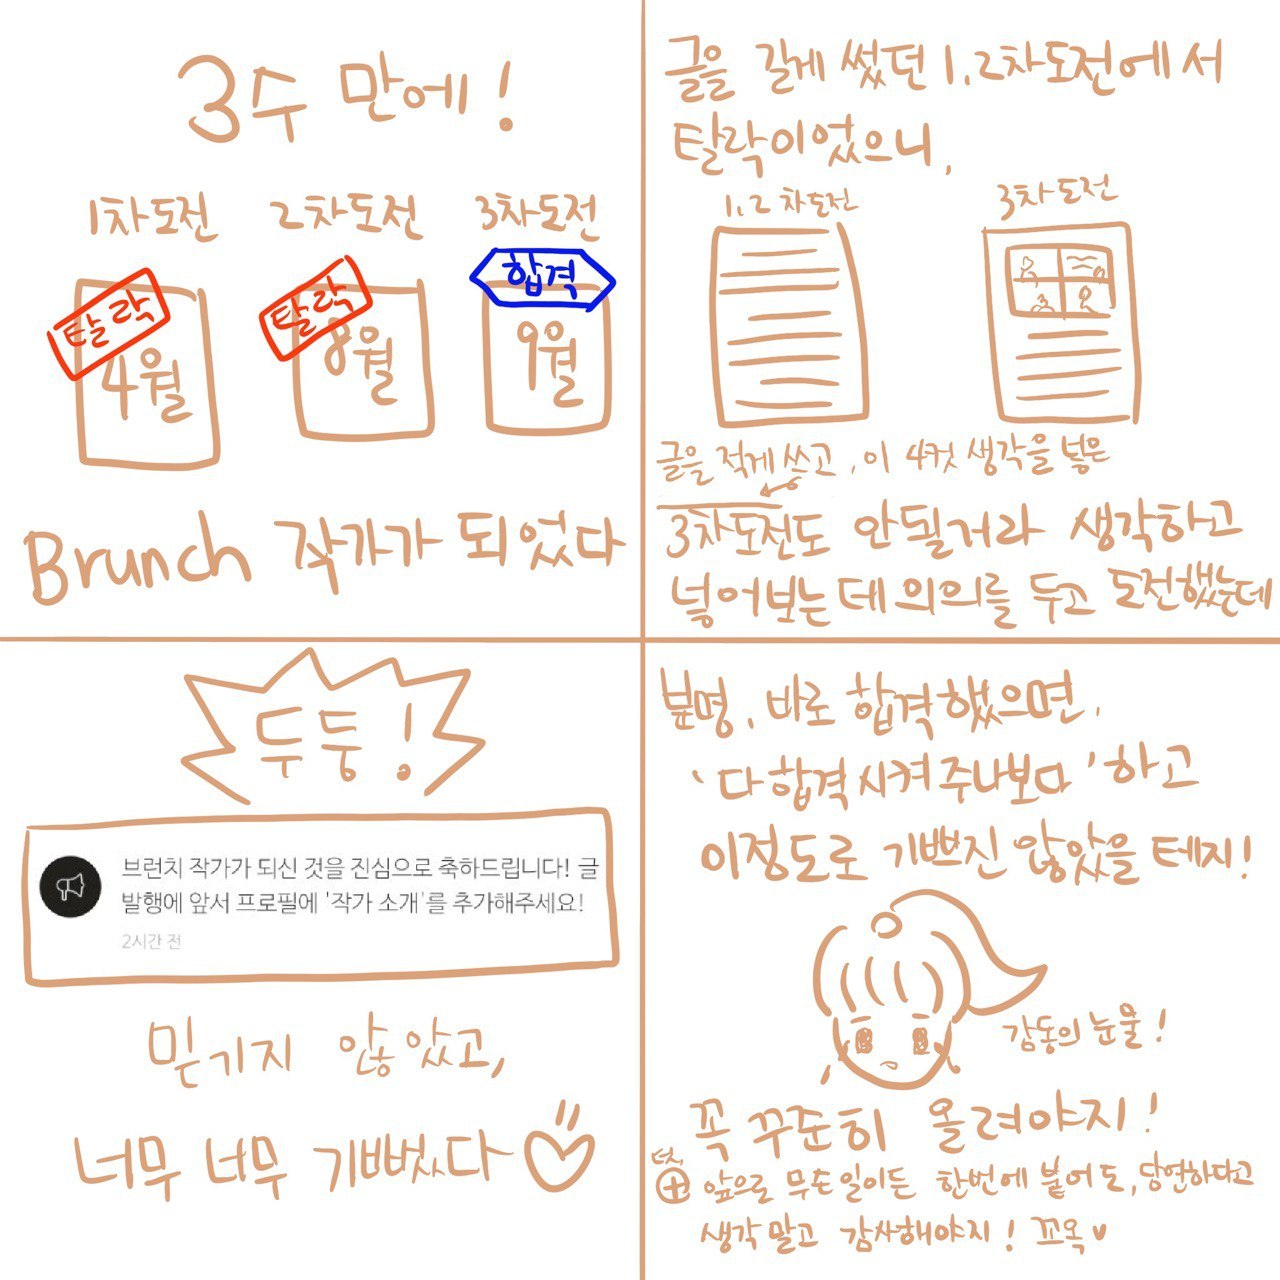 3수 만에!
1차도전 2차도전 3차도전
탈락 탈락 합격
4월 8월 9월
Brunch 작가가 되었다
글을 길게 썼던 1,2차도전에서
탈락이었으니,
1,2차도전 3차도전
글을 적게 쓰고, 이 4컷 생각을 넣은
3차도전도 안될거라 생각하고
넣어보는데 의의를 두고 도전했는데
두둥!
브런치 작가가 되신 것을 진심으로 축하드립니다! 글
발행에 앞서 프로필에 '작가 소개'를 추가해주세요!
2시간 전
믿기지 않았고,
너무 너무 기뻤다
분명, 바로 합격했으면,
'다 합격시켜주나보다' 하고
이정도로 기쁘진 않았을 테지!
감동의 눈물!
꼭 꾸준히 올려야지!
앞으로 무슨일이든 한번에 붙어도, 당연하다고
생각말고 감사해야지! 꼬옥♥